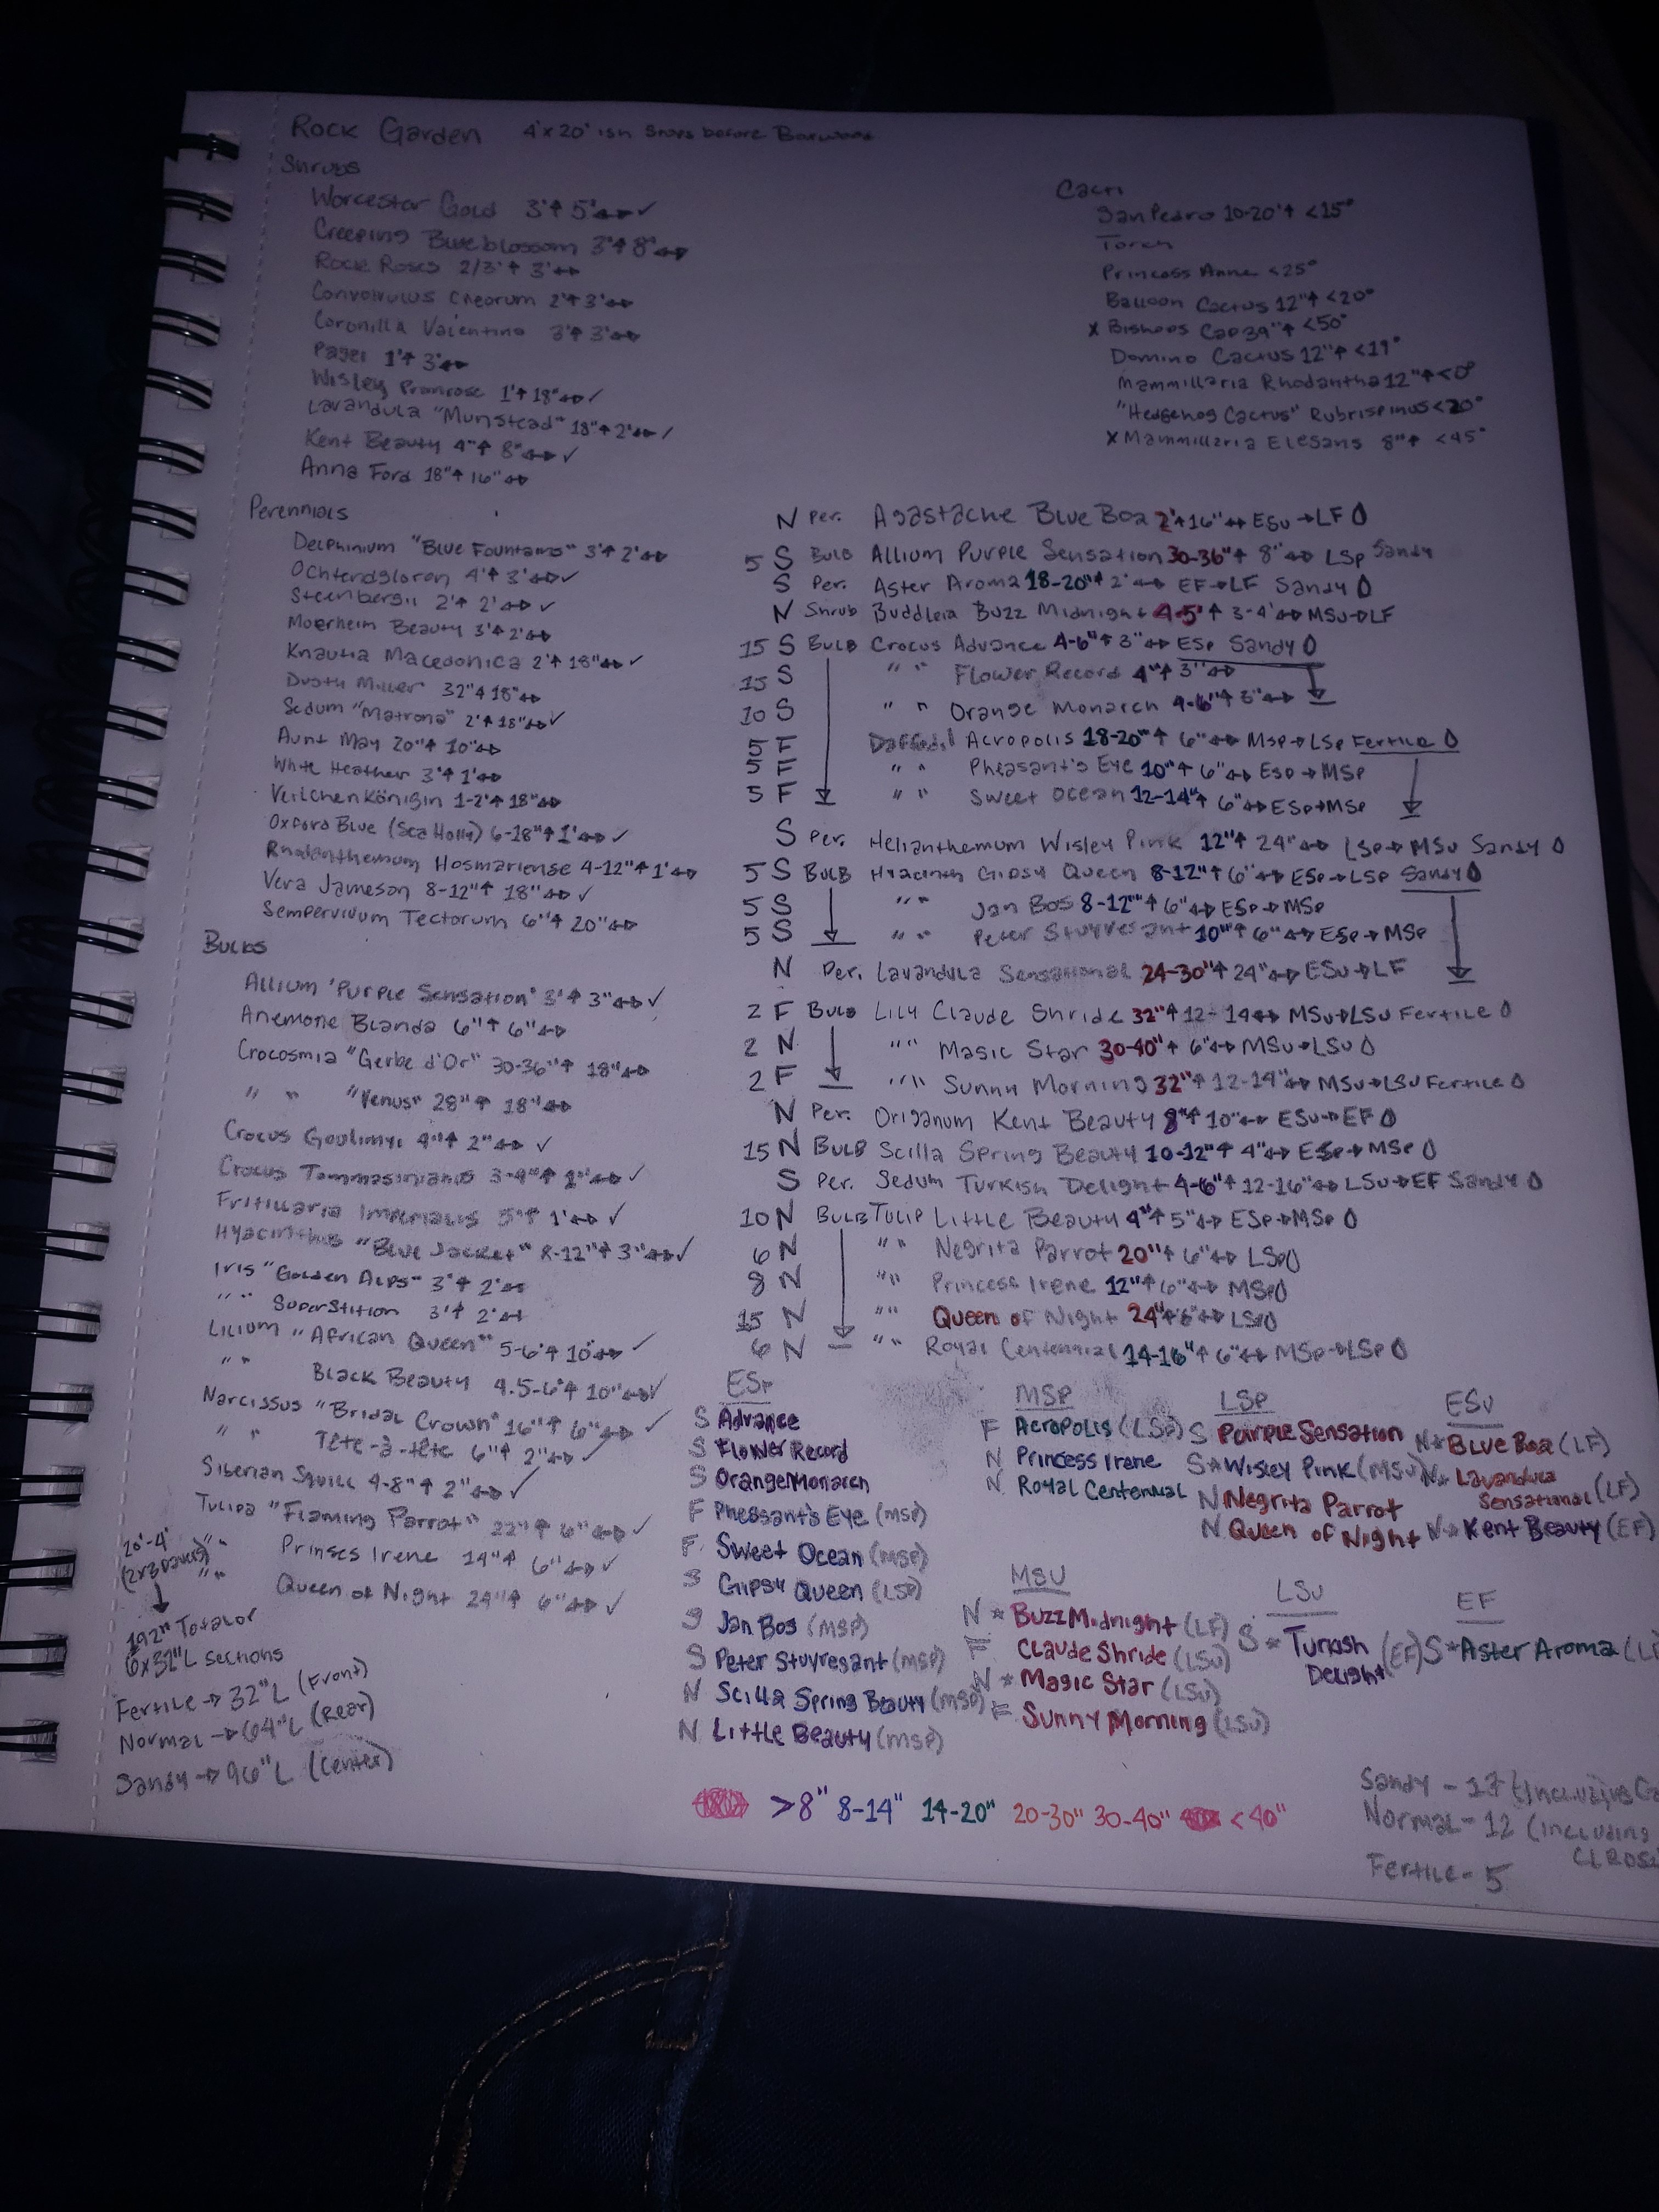 Rock Garden 4'x20' ish Snaps before Boxwoods
Shrubs
Worcester Gold 3'↑ 5'↔ ✓
Creeping Blueblossom 3'↑ 8'↔
Rock Roses 2/3'↑ 3'↔
Convolvulus Cneorum 2'↑ 3'↔
Coronilla Valentina 3'↑ 3'↔
Pagei 1'↑ 3'↔
Wisley Primrose 1'↑ 18"↔ ✓
Lavandula "Munstead" 18"↑ 2'↔ ✓
Kent Beauty 4"↑ 8"↔ ✓
Anna Ford 18"↑ 16"↔
Cacti
San Pedro 10-20'↑ <15°
Torch
Princess Anne <25°
Balloon Cactus 12"↑ <20°
x Bishops Cap 39"↑ <50°
Domino Cactus 12"↑ <19°
Mammillaria Rhodantha 12"↑ <0°
"Hedgehog Cactus" Rubrispinus <20°
x Mammillaria Elegans 8"↑ <45°
Perennials
Delphinium "Blue Fountains" 3'↑ 2'↔
Ochtendgloren 4'↑ 3'↔ ✓
Steenbergii 2'↑ 2'↔ ✓
Moerheim Beauty 3'↑ 2'↔
Knautia Macedonica 2'↑ 18"↔ ✓
Dusty Miller 32"↑ 18"↔
Sedum "Matrona" 2'↑ 18"↔ ✓
Aunt May 20"↑ 10"↔
White Heather 3'↑ 1'↔
Veilchenkönigin 1-2'↑ 18"↔
Oxford Blue (Sea Holly) 6-18"↑ 1'↔ ✓
Rhodanthemum Hosmariense 4-12"↑ 1'↔
Vera Jameson 8-12"↑ 18"↔ ✓
Sempervivum Tectorum 6"↑ 20"↔
Bulbs
Allium 'Purple Sensation' 3'↑ 3"↔ ✓
Anemone Blanda 6"↑ 6"↔
Crocosmia "Gerbe d'Or" 30-36"↑ 18"↔
" " "Venus" 28"↑ 18"↔
Crocus Goulimyi 4"↑ 2"↔ ✓
Crocus Tommasinianus 3-4"↑ 1"↔ ✓
Fritillaria Imperialis 5'↑ 1'↔ ✓
Hyacinthus "Blue Jacket" 8-12"↑ 3"↔ ✓
Iris "Golden Alps" 3'↑ 2'↔
" " Superstition 3'↑ 2'↔
Lilium "African Queen" 5-6'↑ 10"↔ ✓
" " Black Beauty 4.5-6'↑ 10"↔ ✓
Narcissus "Bridal Crown" 16"↑ 6"↔ ✓
" " Tête-à-tête 6"↑ 2"↔ ✓
Siberian Squill 4-8"↑ 2"↔ ✓
Tulipa "Flaming Parrot" 22"↑ 6"↔ ✓
" " Prinses Irene 14"↑ 6"↔ ✓
" " Queen of Night 24"↑ 6"↔ ✓
20'-4'
(2x3 Pavers)
192" Total or
6x32"L Sections
Fertile → 32"L (Front)
Normal → 64"L (Rear)
Sandy → 96"L (Center)
N Per. Agastache Blue Boa 2'↑ 16"↔ ESu→LF
5 S Bulb Allium Purple Sensation 30-36"↑ 8"↔ LSp Sandy
S Per. Aster Aroma 18-20"↑ 2'↔ EF→LF Sandy
N Shrub Buddleia Buzz Midnight 4-5'↑ 3-4'↔ MSu→LF
15 S Bulb Crocus Advance 4-6"↑ 3"↔ ESp Sandy
15 S " " Flower Record 4"↑ 3"↔
10 S " " Orange Monarch 4-6"↑ 3"↔
5 F Daffodil Acropolis 18-20"↑ 6"↔ MSp→LSp Fertile
5 F " " Pheasant's Eye 10"↑ 6"↔ ESp→MSp
5 F " " Sweet Ocean 12-14"↑ 6"↔ ESp→MSp
S Per. Helianthemum Wisley Pink 12"↑ 24"↔ LSp→MSu Sandy
5 S Bulb Hyacinth Gipsy Queen 8-12"↑ 6"↔ ESp→LSp Sandy
5 S " " Jan Bos 8-12"↑ 6"↔ ESp→MSp
5 S " " Peter Stuyvesant 10"↑ 6"↔ ESp→MSp
N Per. Lavandula Sensational 24-30"↑ 24"↔ ESu→LF
2 F Bulb Lily Claude Shride 32"↑ 12-14↔ MSu→LSu Fertile
2 N " " Magic Star 30-40"↑ 6"↔ MSu→LSu
2 F " " Sunny Morning 32"↑ 12-14"↔ MSu→LSu Fertile
N Per. Origanum Kent Beauty 8"↑ 10"↔ ESu→EF
15 N Bulb Scilla Spring Beauty 10-12"↑ 4"↔ ESp→MSp
S Per. Sedum Turkish Delight 4-6"↑ 12-16"↔ LSu→EF Sandy
10 N Bulb Tulip Little Beauty 4"↑ 5"↔ ESp→MSp
6 N " " Negrita Parrot 20"↑ 6"↔ LSp
8 N " " Princess Irene 12"↑ 6"↔ MSp
15 N " " Queen of Night 24"↑ 6"↔ LSp
6 N " " Royal Centennial 14-16"↑ 6"↔ MSp→LSp
ESp
S Advance
S Flower Record
S Orange Monarch
F Pheasant's Eye (MSp)
F Sweet Ocean (MSp)
S Gipsy Queen (LSp)
S Jan Bos (MSp)
S Peter Stuyvesant (MSp)
N Scilla Spring Beauty (MSp)
N Little Beauty (MSp)
MSp
F Acropolis (LSp)
N Princess Irene
N Royal Centennal
LSp
S Purple Sensation
S* Wisley Pink (MSu)
N Negrita Parrot
N Queen of Night
ESu
N* Blue Boa (LF)
N* Lavandula Sensational (LF)
N* Kent Beauty (EF)
MSu
N* Buzz Midnight (LF)
F Claude Shride (LSu)
N* Magic Star (LSu)
F Sunny Morning (LSu)
LSu
S* Turkish Delight (EF)
EF
S* Aster Aroma
>8" 8-14" 14-20" 20-30" 30-40" <40"
Sandy - 17 (Including
Normal - 12 (Including
Fertile - 5